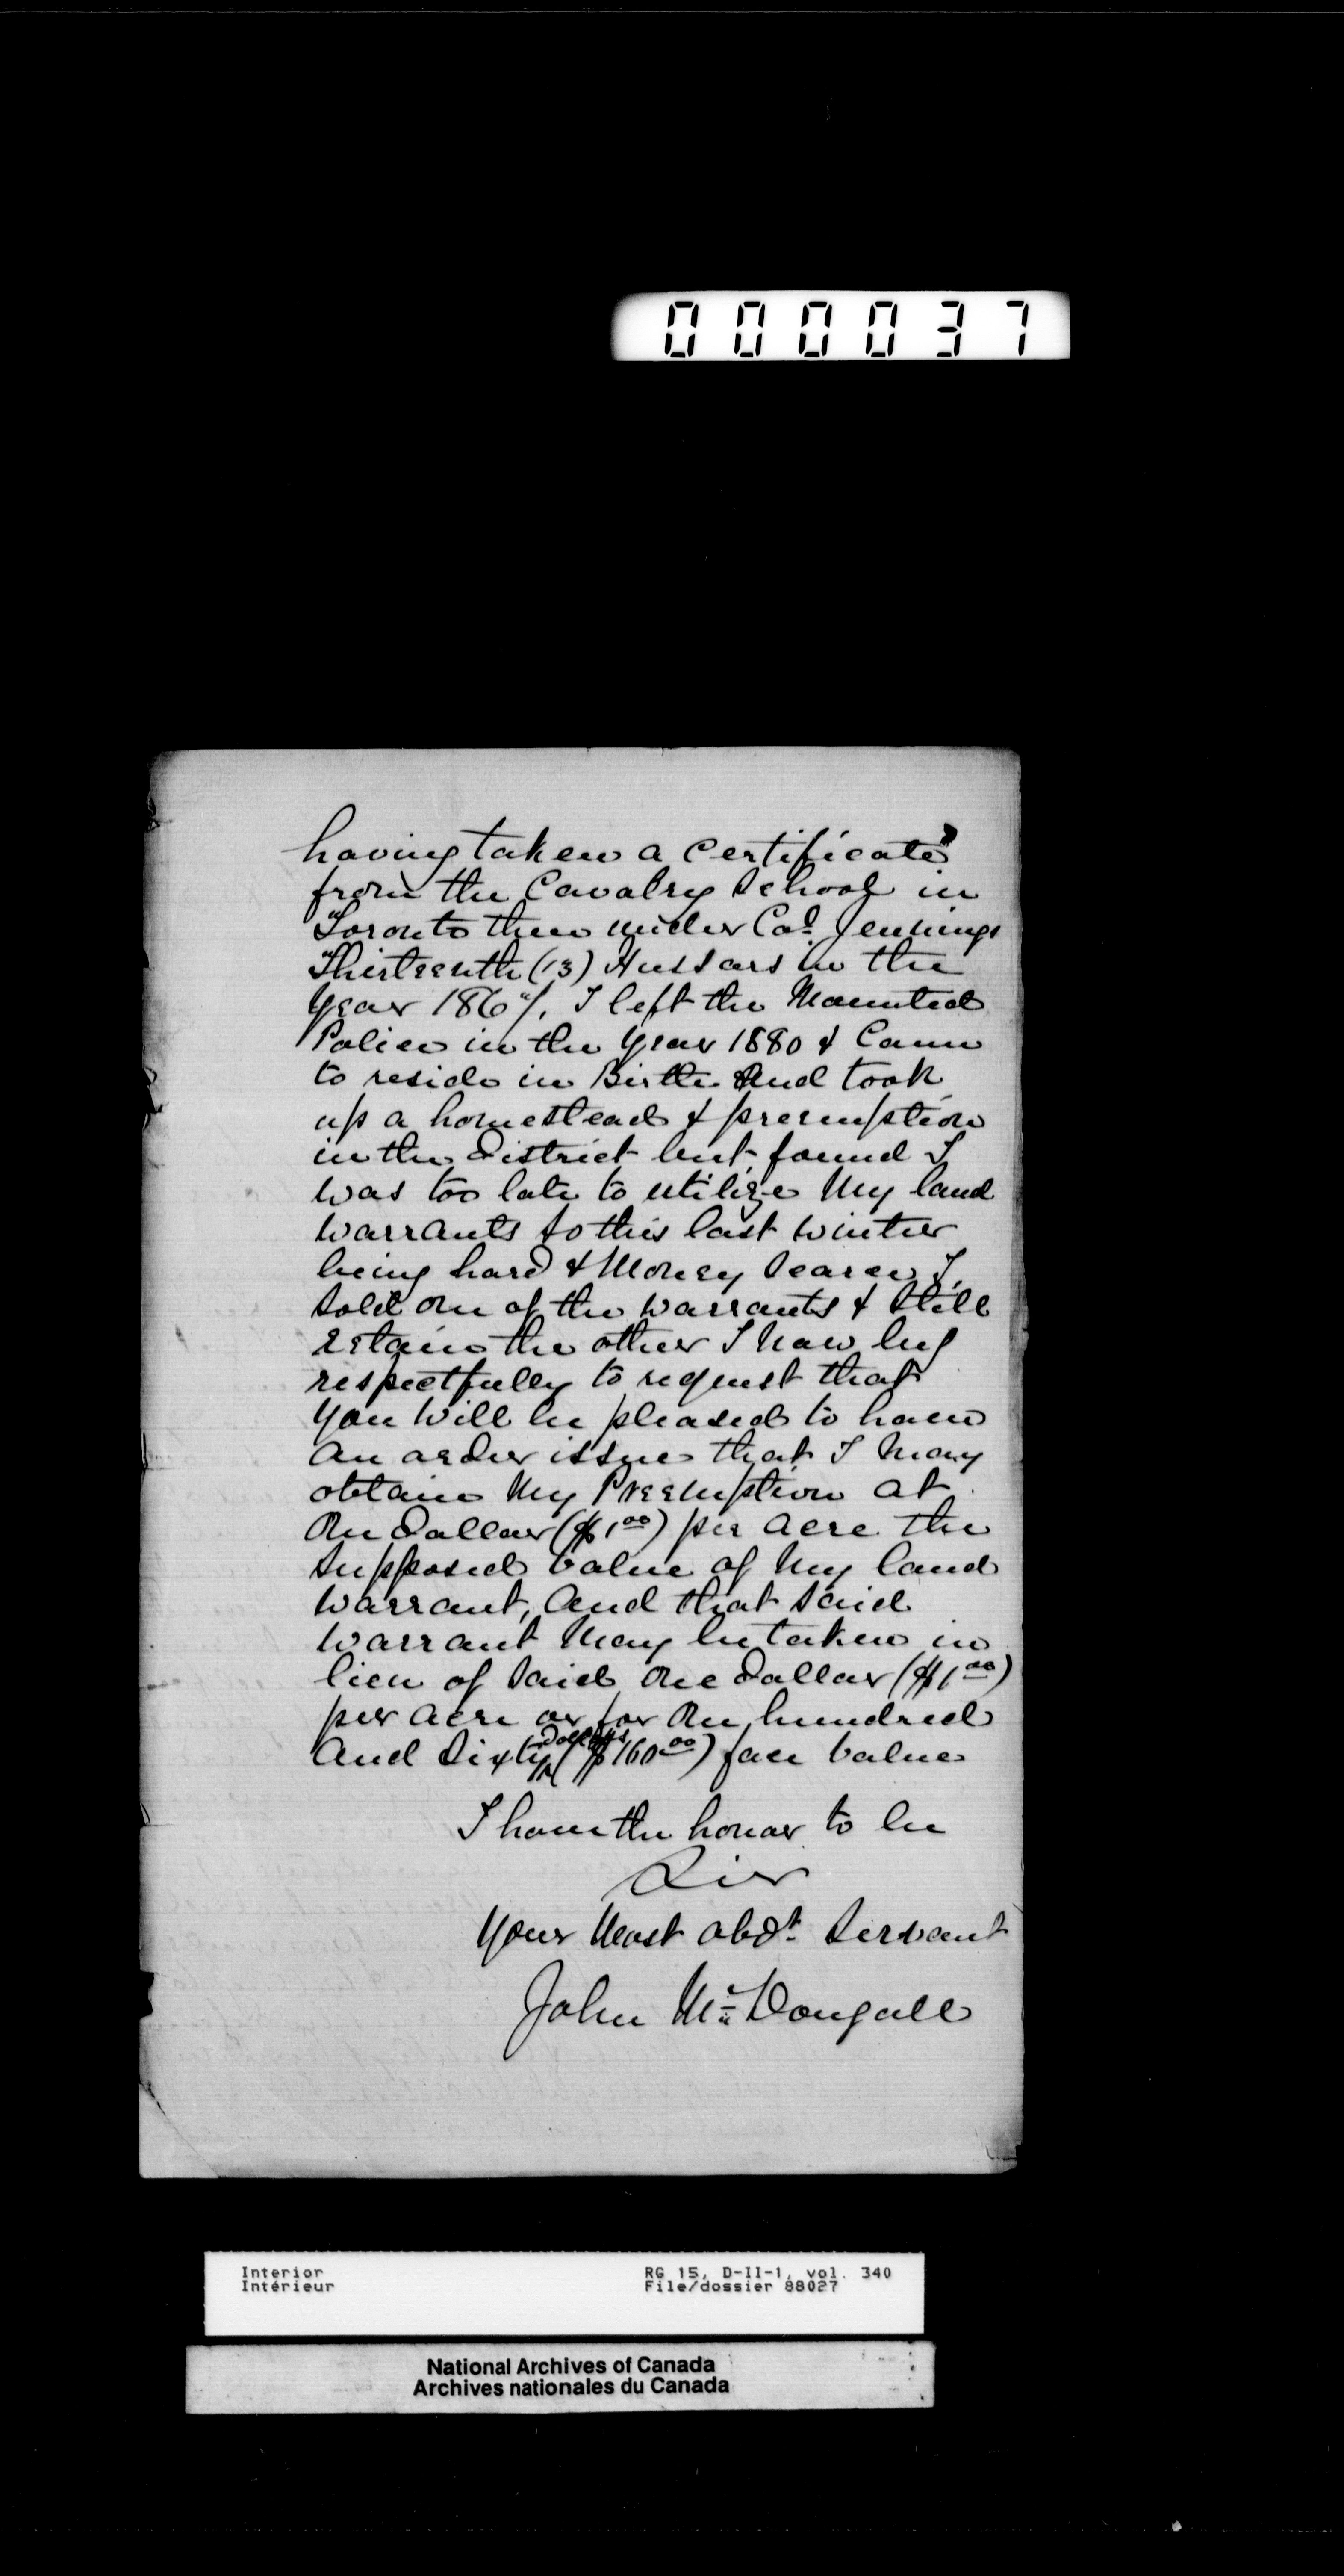 000037
having taken a certificate
from the Cavalry School in
Toronto then under Col. Jennings
Thirteenth (13) Hussars in the
Year 186 I left the Mounted
Police in the Year 1880 & Came
to reside in Birtle And took
up a homestead & preemption
in the District but found I
was too late to utilize My land
warrants so this last winter
being hard & Money Scarce I
sold one of the warrants & still
retain the other I Now beg
respectfully to request that
You Will be pleased to have
An order issue that I May
obtain My Preemption At
One Dollar ($1.00) per Acre the
Supposed value of My land
Warrant, And that Said
Warrant May be taken in
lieu of Said One Dollar ($1.00)
per Acre or for One hundred
And Sixty Dollars ($160.00) face value
I have the honor to be
Sir
Your Most obdt. Servant
John Mc Dougall
Interior
Intérieur
RG 15, D-II-1, vol. 340
File/dossier 88027
National Archives of Canada
Archives nationales du Canada